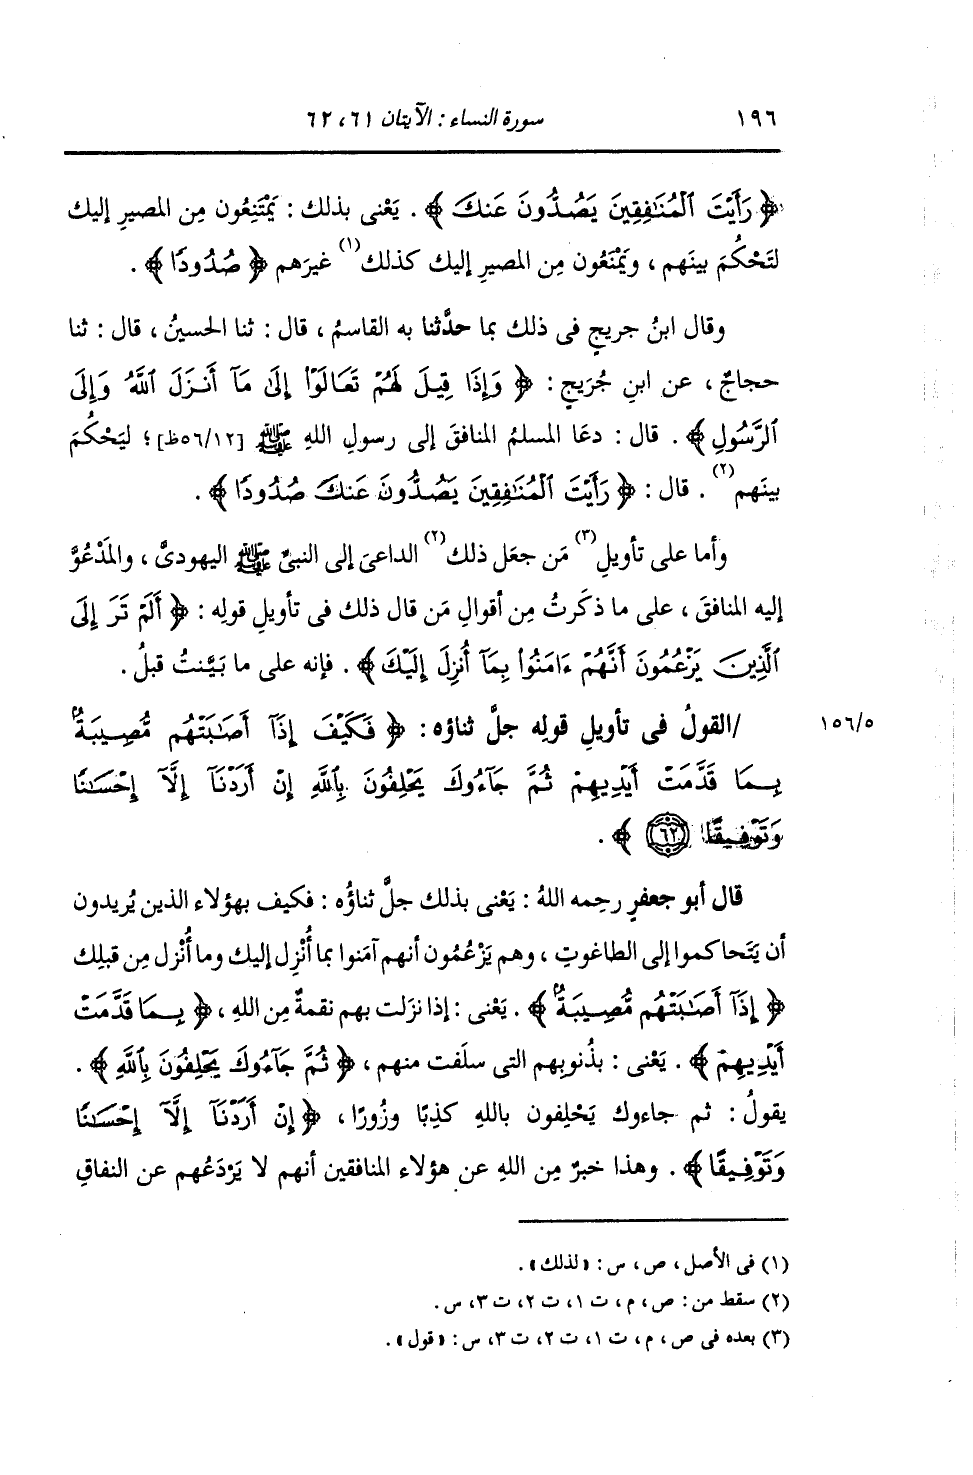 ١٩٦ سورة النساء : الآيتان ٦١ ، ٦٢
﴿ رَأَيْتَ ٱلْمُنَٰفِقِينَ يَصُدُّونَ عَنكَ ﴾ . يَعْنى بذلك : يَمْتَنِعُون مِن المصيرِ إليك
لتَحْكُمَ بينَهم ، ويَمْنَعُون مِن المصيرِ إليك كذلك(١) غيرَهم ﴿ صُدُودًا ﴾ .
وقال ابنُ جريجٍ فى ذلك بما حدَّثنا به القاسمُ ، قال : ثنا الحسينُ ، قال : ثنا
حجاجٌ ، عن ابنِ جُرَيجٍ : ﴿ وَإِذَا قِيلَ لَهُمْ تَعَالَوْا۟ إِلَىٰ مَآ أَنزَلَ ٱللَّهُ وَإِلَى
ٱلرَّسُولِ ﴾ . قال : دعَا المسلمُ المنافقَ إلى رسولِ اللهِ ﷺ [٥٦/١٢ظ] ؛ ليَحْكُمَ
بينَهم(٢) . قال : ﴿ رَأَيْتَ ٱلْمُنَٰفِقِينَ يَصُدُّونَ عَنكَ صُدُودًا ﴾ .
وأما على تأويلِ(٣) مَن جعَل ذلك(٢) الداعىَ إلى النبىِّ ﷺ اليهودىَّ ، والمَدْعُوَّ
إليه المنافقَ ، على ما ذكَرتُ مِن أقوالِ مَن قال ذلك فى تأويلِ قولِه : ﴿ أَلَمْ تَرَ إِلَى
ٱلَّذِينَ يَزْعُمُونَ أَنَّهُمْ ءَامَنُوا۟ بِمَآ أُنزِلَ إِلَيْكَ ﴾ . فإنه على ما بَيَّنتُ قبلُ .
١٥٦/٥ /القولُ فى تأويلِ قولِه جلَّ ثناؤه : ﴿ فَكَيْفَ إِذَآ أَصَٰبَتْهُم مُّصِيبَةٌۢ
بِمَا قَدَّمَتْ أَيْدِيهِمْ ثُمَّ جَآءُوكَ يَحْلِفُونَ بِٱللَّهِ إِنْ أَرَدْنَآ إِلَّآ إِحْسَٰنًا
وَتَوْفِيقًا ٦٢ ﴾ .
قال أبو جعفرٍ رحِمه اللهُ : يَعْنى بذلك جلَّ ثناؤُه : فكيف بهؤلاء الذين يُريدون
أن يَتَحاكموا إلى الطاغوتِ ، وهم يَزْعُمُون أنهم آمَنوا بما أُنْزِل إليك وما أُنْزل مِن قبلِك
﴿ إِذَآ أَصَٰبَتْهُم مُّصِيبَةٌۢ ﴾ . يَعْنى : إذا نزَلت بهم نقمةٌ مِن اللهِ ، ﴿ بِمَا قَدَّمَتْ
أَيْدِيهِمْ ﴾ . يَعْنى : بذُنوبِهم التى سلَفت منهم ، ﴿ ثُمَّ جَآءُوكَ يَحْلِفُونَ بِٱللَّهِ ﴾ .
يقولُ : ثم جاءوك يَحْلِفون باللهِ كذِبًا وزُورًا ، ﴿ إِنْ أَرَدْنَآ إِلَّآ إِحْسَٰنًا
وَتَوْفِيقًا ﴾ . وهذا خبرٌ مِن اللهِ عن هؤلاء المنافقين أنهم لا يَرْدَعُهم عن النفاقِ
(١) فى الأصل ، ص ، س : «لذلك» .
(٢) سقط من : ص ، م ، ت ١ ، ت ٢ ، ت ٣ ، س .
(٣) بعده فى ص ، م ، ت ١ ، ت ٢ ، ت ٣ ، س : «قول» .